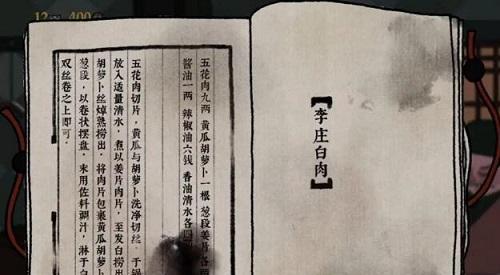 【李庄白肉】
五花肉九两 黄瓜胡萝卜一根 葱段姜片各
酱油一两 辣椒油六钱 香油清水各
五花肉切片，黄瓜与胡萝卜洗净切丝。于锅
放入适量清水，煮以姜片肉片，至发白捞出
胡萝卜丝焯熟捞出，将肉片包裹黄瓜胡萝卜
葱段，以卷状摆盘，末用佐料调汁，淋于白
双丝卷之上即可。